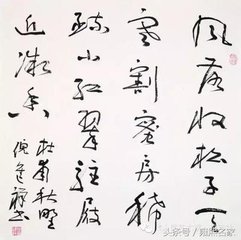 風落收松子天
寒割蜜房稀
疏小紅翠駐屐
近微香
杜甫秋野
头条号